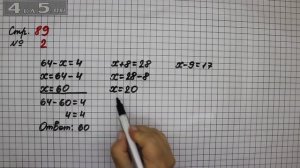 4 a 5
Стр. 89
№ 2
64-x=4
x=64-4
x=60
64-60=4
4=4
Ответ: 60
x+8=28
x=28-8
x=20
x-9=17